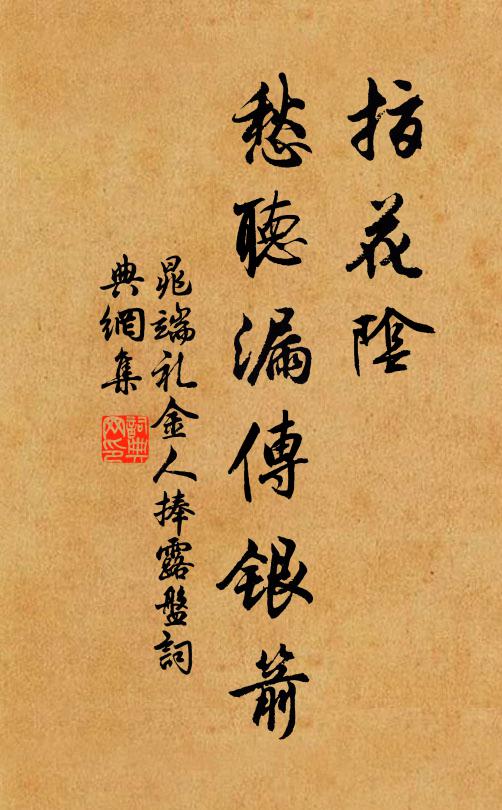 指花陰
愁聽漏傳銀箭
晁端礼金人捧露盤詞
典網集
詞典網印